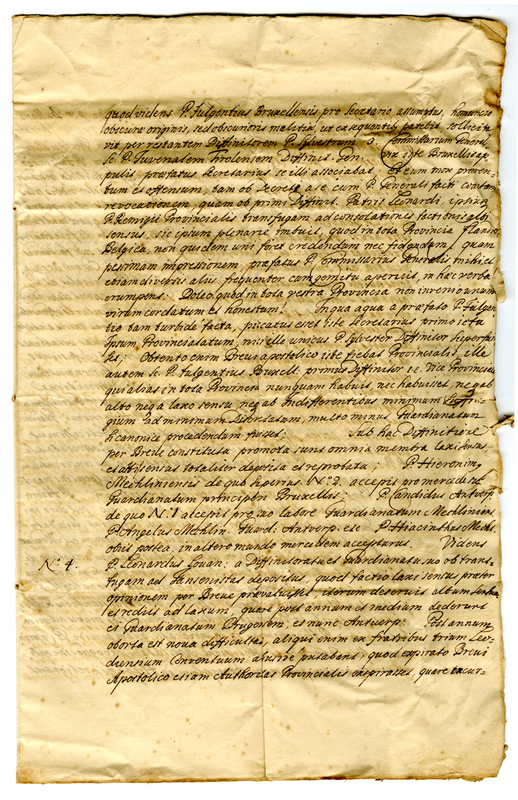 quod videns P. Fulgentius Bruxellensis pro Secretario assumptus, homuncio
obscuræ originis, sed obscurioris malitiæ, ut ex sequentib. patebit sollicita
vit per restantem Diffinitorem P. Sylvestrum Commissarium General.
Sc. P. Juvenalem Tirolensem Diffinit. Gen.
pulis, præfatus Secretarius se illi associabat, et eum mox præven-
tum et offensum, tam ob Secreta a se cum P. Generali facti
revocationem, quam ob primi Diffinit. Patris Leonardi, ipsius
P. Remigii Provincialis transfugam ad consolationes factionis
sensus, sic ipsum plenarie imbuit, quod in tota Provincia Flandro
Belgica, non quidem uni foret credendum nec fidendum, quam
pessimam impressionem, præfatus P. Commissarius Generalis mihi et
etiam diversis aliis frequenter cum gemitu aperuit, in hæc verba
erumpens: Doleo quod in tota vestra Provincia non invenio unum
virum cordatum et honestum! Inqua aqua a præfato P. Fulgen-
tio tam turbide facta, piscatus est iste Secretarius primo ictu
ipsum Provincialatum,
tes; Obtento enim Brevi apostolico iste fiebat Provincialis, ille
autem Sc. P. Fulgentius Bruxell: primus Diffinitor et Vice Provincialis
qui alias in tota Provincia nunquam habuit, nec habuisset, neq ab
alto neq a laxo sensu neq ab Indifferentibus minimum Suffra-
gium ad minimum Discretatum, multo minus Guardianatum
si canonice procedendum fuisset; Sub hac Diffinitione
per Breve constituta, promota sunt omnia membra laxi sensus
et alti sensus totaliter depressa et reprobata; P. Hieronim,
Mechliniensis de quo superius N.º 3. accepit pro mercede
Guardianatum principalem Bruxellis; P. Candidus Antverp.
de quo N.º 1 accepit pro suo labore Guardianatum Mechliniens.
P. Angelus Mechlin. Guard. Antverp. et P. Hiacinthus Mechl.
obiit postea, in altero mundo mercedem accepturus. Videns
N.º 4. P. Leonardus Lovan: a Diffinitoratu et Guardianatu suo ob trans-
fugam ad Jansenistas depositus, quod factio laxi sensus præter
opinionem per Breve prævaluisset, iterum deseruit altum Sensum
et rediit ad laxum, quare post annum et medium dederunt
ei Guardianatum Brugensem, et nunc Antverp: Post annum
oborta est nova difficultas, aliqui enim ex fratribus trium Leo-
diensium Conventuum putabant, quod expirato Brevi
Apostolico etiam Authoritas Provincialis expirasset, quare excur-